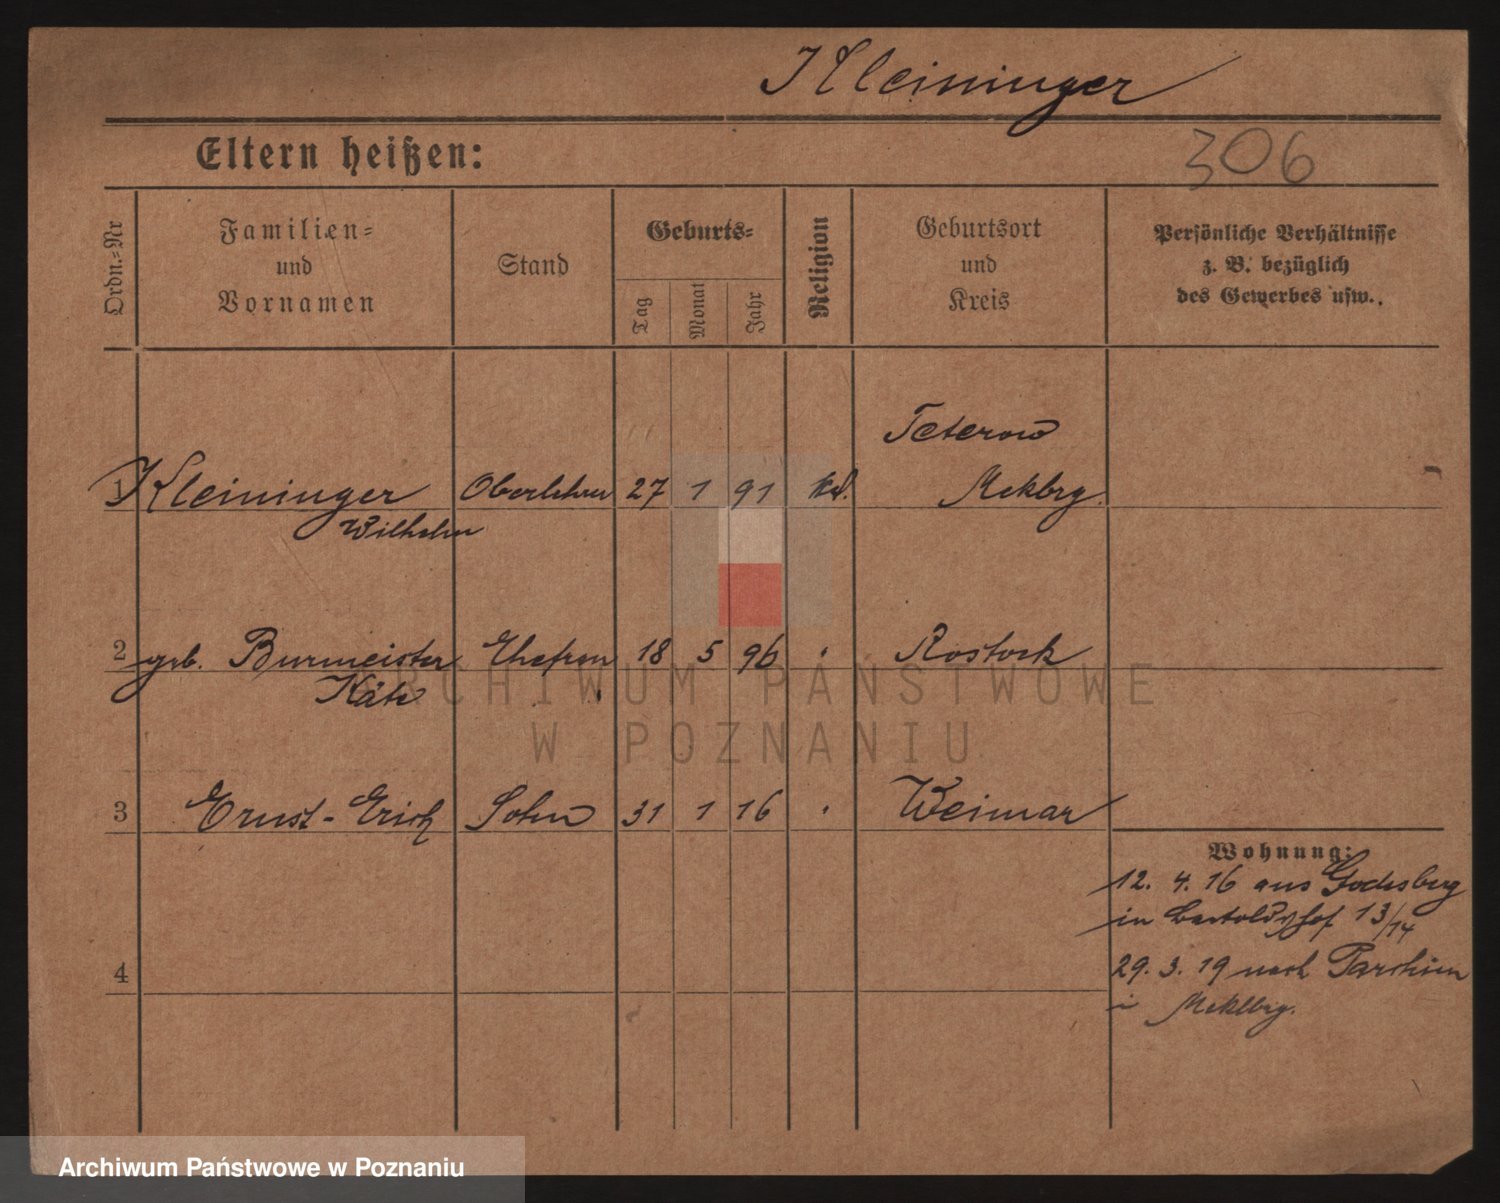 Kleininger
Eltern heißen:
306
Ordn.-Nr
Familien-
und
Vornamen
Stand
Geburts-
Tag
Monat
Jahr
Religion
Geburtsort
und
Kreis
Persönliche Verhältnisse
z. B. bezüglich
des Gewerbes usw.
Teterow
1 Kleininger Oberlehrer 27 1 91 Meklbrg.
Wilhelm
2 geb. Burmeister Ehefrau 18 5 96 Rostock
Käte
3 Ernst-Erich Sohn 31 1 16 Weimar
Wohnung:
12. 4. 16 aus Godesberg
in 13/14
4
29. 3. 19 nach Parchim
i Meklbrg.
ARCHIWUM PAŃSTWOWE
W POZNANIU
Archiwum Państwowe w Poznaniu